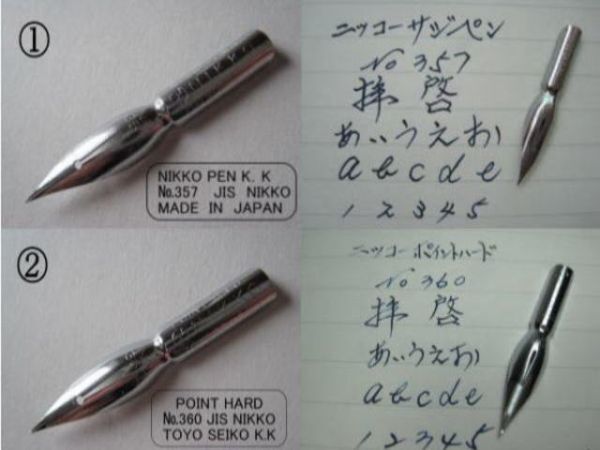 ①
NIKKO PEN K. K
№357 JIS NIKKO
MADE IN JAPAN
ニッコーサジペン
No 357
拝啓
あいうえお
a b c d e
1 2 3 4 5
②
POINT HARD
№360 JIS NIKKO
TOYO SEIKO K.K
ニッコーポイントハード
No 360
拝啓
あいうえお
a b c d e
1 2 3 4 5